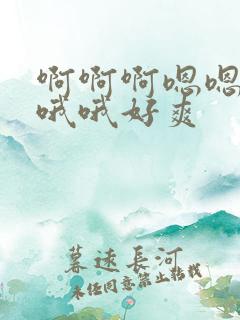 啊啊啊嗯嗯
哦哦好爽
暮遠長河
未任同意禁止转载